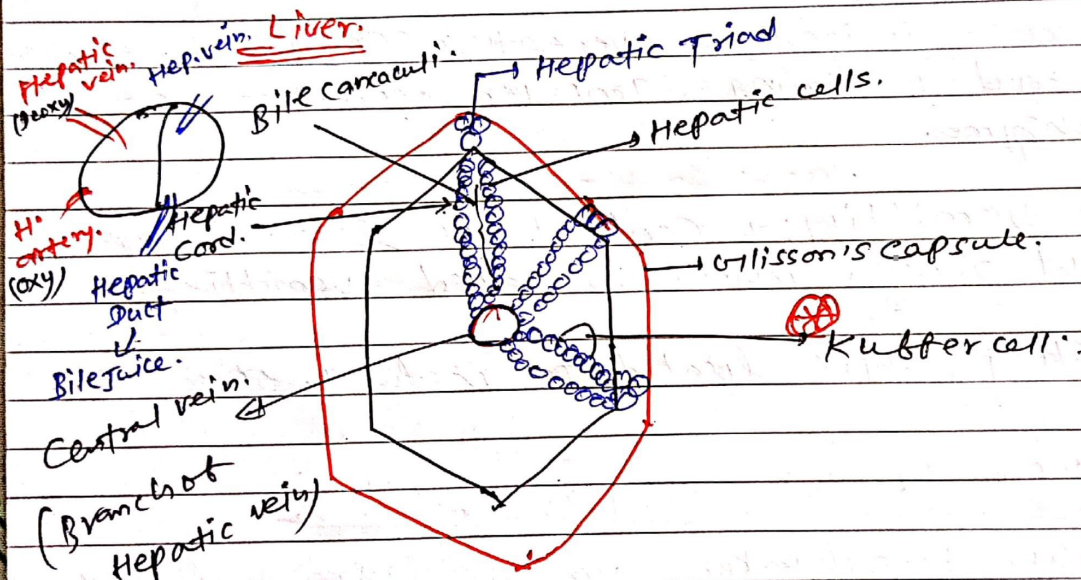 Liver.
Hepatic
vein.
(deoxy)
Hep.vein.
Bile canaculi.
Hepatic Triad
Hepatic cells.
H.
artery.
(oxy)
Hepatic
Cord.
Hepatic
Duct
Bile Juice.
Glisson's capsule.
Kuffer cell.
Central vein.
(Branch of
Hepatic vein)